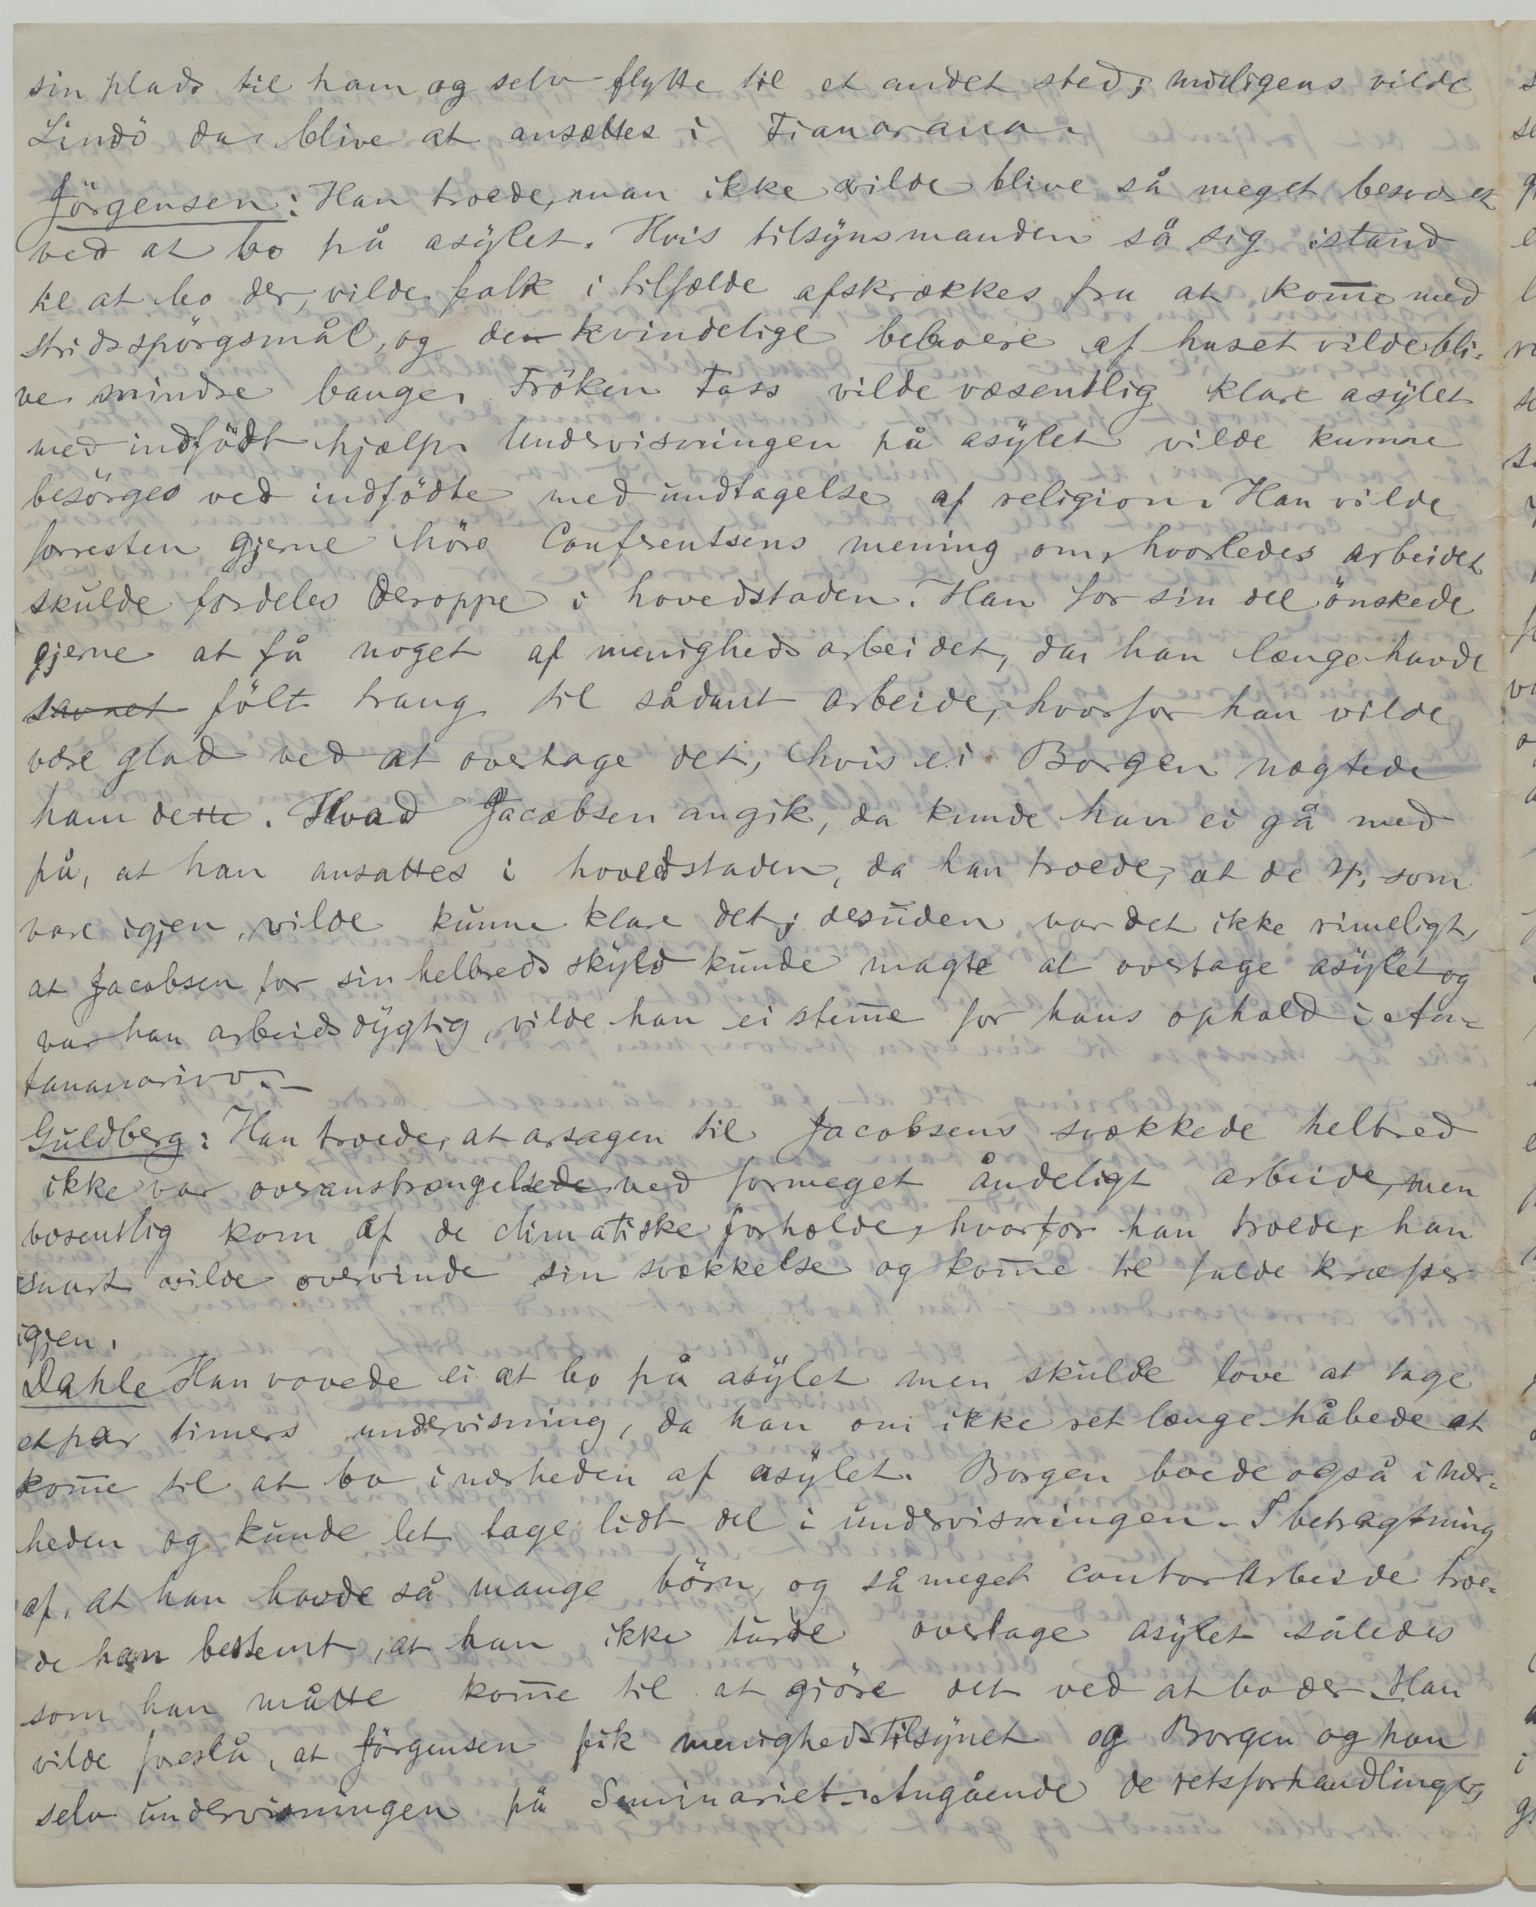 sin plads til ham og selv flytte til et andet sted; muligens vilde
Lindö da blive at ansættes i Fianarana.
Jörgensen: Han troede, man ikke vilde blive så meget besværet
ved at bo på asylet. Hvis tilsynsmanden så sig istand
til at bo der, vilde folk i tilfælde afskrækkes fra at kom̅e med
stridsspörgsmål, og de kvindelige beboere af huset vilde bli-
ve mindre bange. Fröken Fass vilde væsentlig klare asylet
med indfödt hjælp. Undervisningen på asylet vilde kunne
besörges ved indfödte med undtagelse af religion. Han vilde
forresten gjerne höre Conferentsens mening om, hvorledes arbeidet
skulde fordeles deroppe i hovedstaden. Han for sin del önskede
gjerne at få noget af menighedsarbeidet, da han længe havde
savnet fölt trang til sådant arbeide, hvorfor han vilde
være glad ved at overtage det, hvis ei Borgen nægtede
ham dette. Hvad Jacobsen angik, da kunde han ei gå med
på, at han ansattes i hovedstaden, da han troede, at de 4, som
vare igjen, vilde kunne klare det; desuden var det ikke rimeligt,
at Jacobsen for sin helbreds skyld kunde magte at overtage asylet og
var han arbeidsdygtig, vilde han ei stem̅e for hans ophold i An-
tananarivo. —
Guldberg: Han troede, at arsagen til Jacobsens svækkede helbred
ikke var overanstrængelse ved formeget åndeligt arbeide, men
væsentlig kom af de climatiske forholde, hvorfor han troede, han
snart vilde overvinde sin svækkelse og kom̅e til fulde kræfter
igjen.
Dahle Han vovede ei at bo på asylet men skulde love at tage
et par timers undervisning, da han om ikke ret længe håbede at
kom̅e til at bo i nærheden af asylet. Borgen boede også i nær-
heden og kunde let tage lidt del i undervisningen. I betragtning
af, at han havde så mange börn, og så meget contorarbeide troe-
de han bestemt, at han ikke turde overtage asylet således
som han måtte kom̅e til at gjöre det ved at bo der. Han
vilde foreslå, at Jörgensen fik menighedstilsynet og Borgen og han
selv undervisningen på Seminariet. Angående de retsforhandlinger,